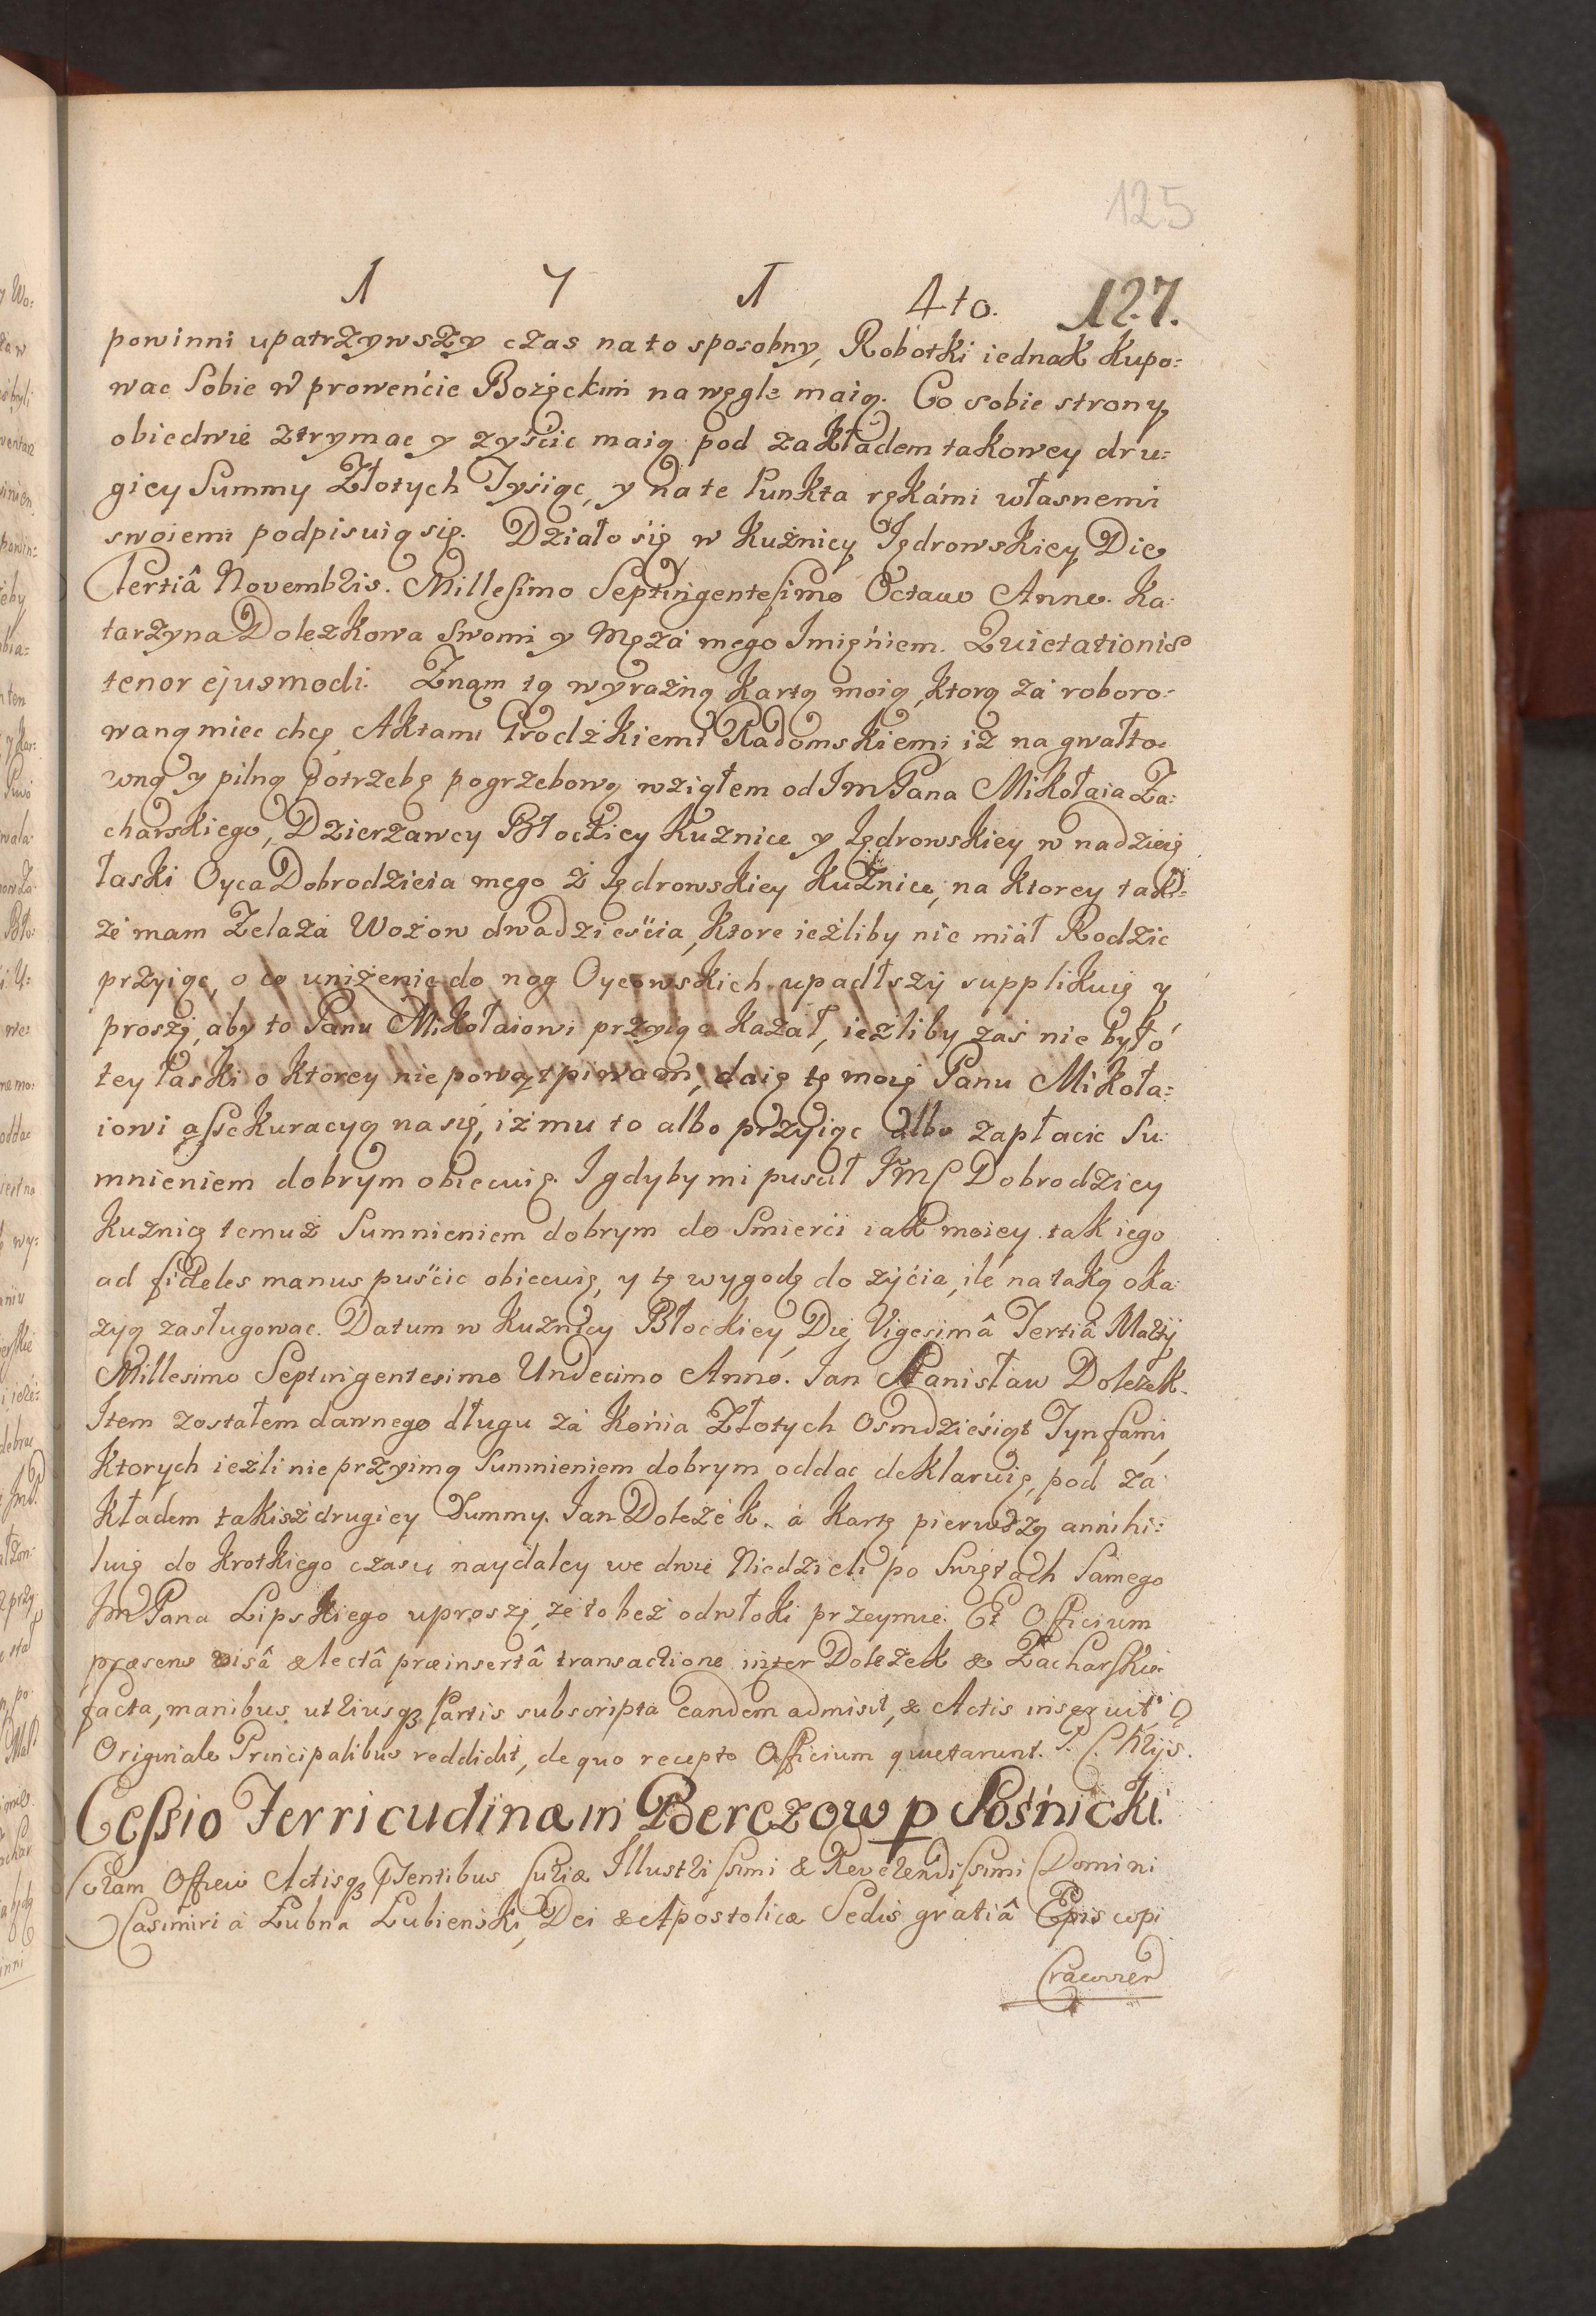 125
1 7 1 4to. 127.
powinni upatrzywszy czas na to sposobny, Robotki iednak kupo:
wac Sobie w proweńcie Bożęckim na węgle maią. Co sobie strony
obiedwie ztrymac y zyścic maią pod zakładem takowey dru:
giey Summy Złotych Tysiąc, y na te Punkta rękámi własnemi
swoiemi podpisuią się. Działo się w Kuźnicy Jędrowskiey Die
Tertiâ Novembris. Millesimo Septingentesimo Octauo Anno. Ka:
tarzyna Doleżkowa Swoim y Mężá mego Imięńiem. Quietationis
tenor ejusmodi. Znam tą wyrażną kartą moią, ktorą zá roboro-
waną miec chcę, Aktami Grodzkiemi Radomskiemi iż na gwałto-
wną y pilną potrzebę pogrzebową wziąłem od Im Pana Mikołaia Za:
charskiego, Dzierzawcy Błockiey Kuznice y Jędrowskiey w nadzieię
łaski Oyca Dobrodzieia mego z Jędrowskiey Kuźnice, na ktorey tak:
że mam Zelaza Wozow dwadzieścia, ktore ieżliby nie miał Rodzic
przyiąc, o co uniżenie do nog Oycowskich upadłszy supplikuię y
proszę, aby to Panu Mikołaiowi przyiąc kazał, ieżliby zaś nie było
tey łaski o ktorey nie powątpiwam, daię tę moię Panu Mikoła:
iowi assekuracyą na się, iż mu to albo przyiąc albo zapłacic Su:
mnieniem dobrym obiecuię. I gdyby mi puscił JMC Dobrodziey
Kuznicę temuż Sumnieniem dobrym do Smierci iak moiey tak iego
ad fideles manus puścic obiecuię, y tę wygodę do zyćia, ile na taką oka:
zyą zasługowac. Datum w Kuznicy Błockiey, Die Vigesimâ Tertiâ Martij
Millesimo Septingentesimo Undecimo Anno. Jan Stanisław Doleżek.
Item zostałem dawnego długu zá Końia Złotych Osmdzieśiąt Tynfami,
Ktorych ieżli nie przyimą Sumnieniem dobrym oddac deklaruię, pod zá
kładem takisz drugiey Summy. Jan Doleżek. á Kartę pierwszą annihi:
luię do krotkiego czasu naydaley we dwie Niedzieli po Swiętach Samego
Jm Pana Lipskiego uproszę, że to bez odwłoki przeymie. Et Officium
præsens visâ & lectâ præinsertâ transactione inter Doleżek & Zacharski
facta, manibus utriusq Partis subscripta eandem admisit, & Actis inseruit
Originale Principalibus reddidit, de quo recepto Officium quietarunt.
Cessio Terricudinæ in Berczow p Sośnicki.
Coram Officio Actisq Curiæ Illustrissimi & Reverendissimi Domini
Casimiri à Lubna Lubienski, Dei & Apostolicæ Sedis gratiâ Episcopi
Cracovien